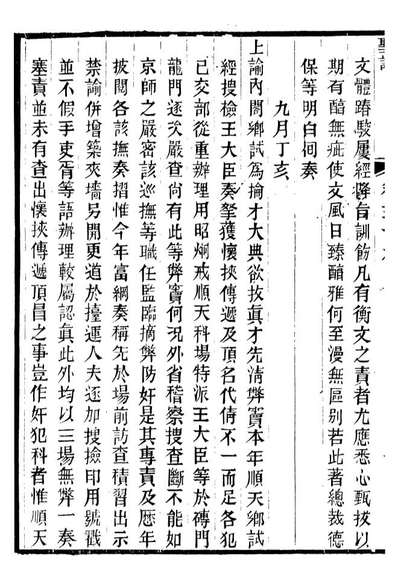 文體踳駮屢經降旨訓飭凡有衡文之責者尤應悉心甄拔以
期有醇無疵使文風日臻醇雅何至漫無區别若此著總裁德
保等明白囘奏
九月丁亥
上諭内閣鄉試為掄才大典欲拔真才先清弊竇本年順天鄉試
經搜檢王大臣奏拏獲懷挾傳遞及頂名代倩不一而足各犯
已交部從重辦理用昭炯戒順天科場特派王大臣等於磚門
龍門逐次嚴查尚有此等弊竇何况外省稽察搜查斷不能如
京師之嚴密該巡撫等職任監臨摘弊防奸是其專責及歴年
披閲各該撫奏摺惟今年富綱奏稱先於場前訪查積習出示
禁諭併增築夾墻另開更道於擡運人夫逐加搜檢印用號戳
並不假手吏胥等語辦理較屬認真此外均以三場無弊一奏
塞責並未有查出懷挾傳遞頂冒之事豈作奸犯科者惟順天